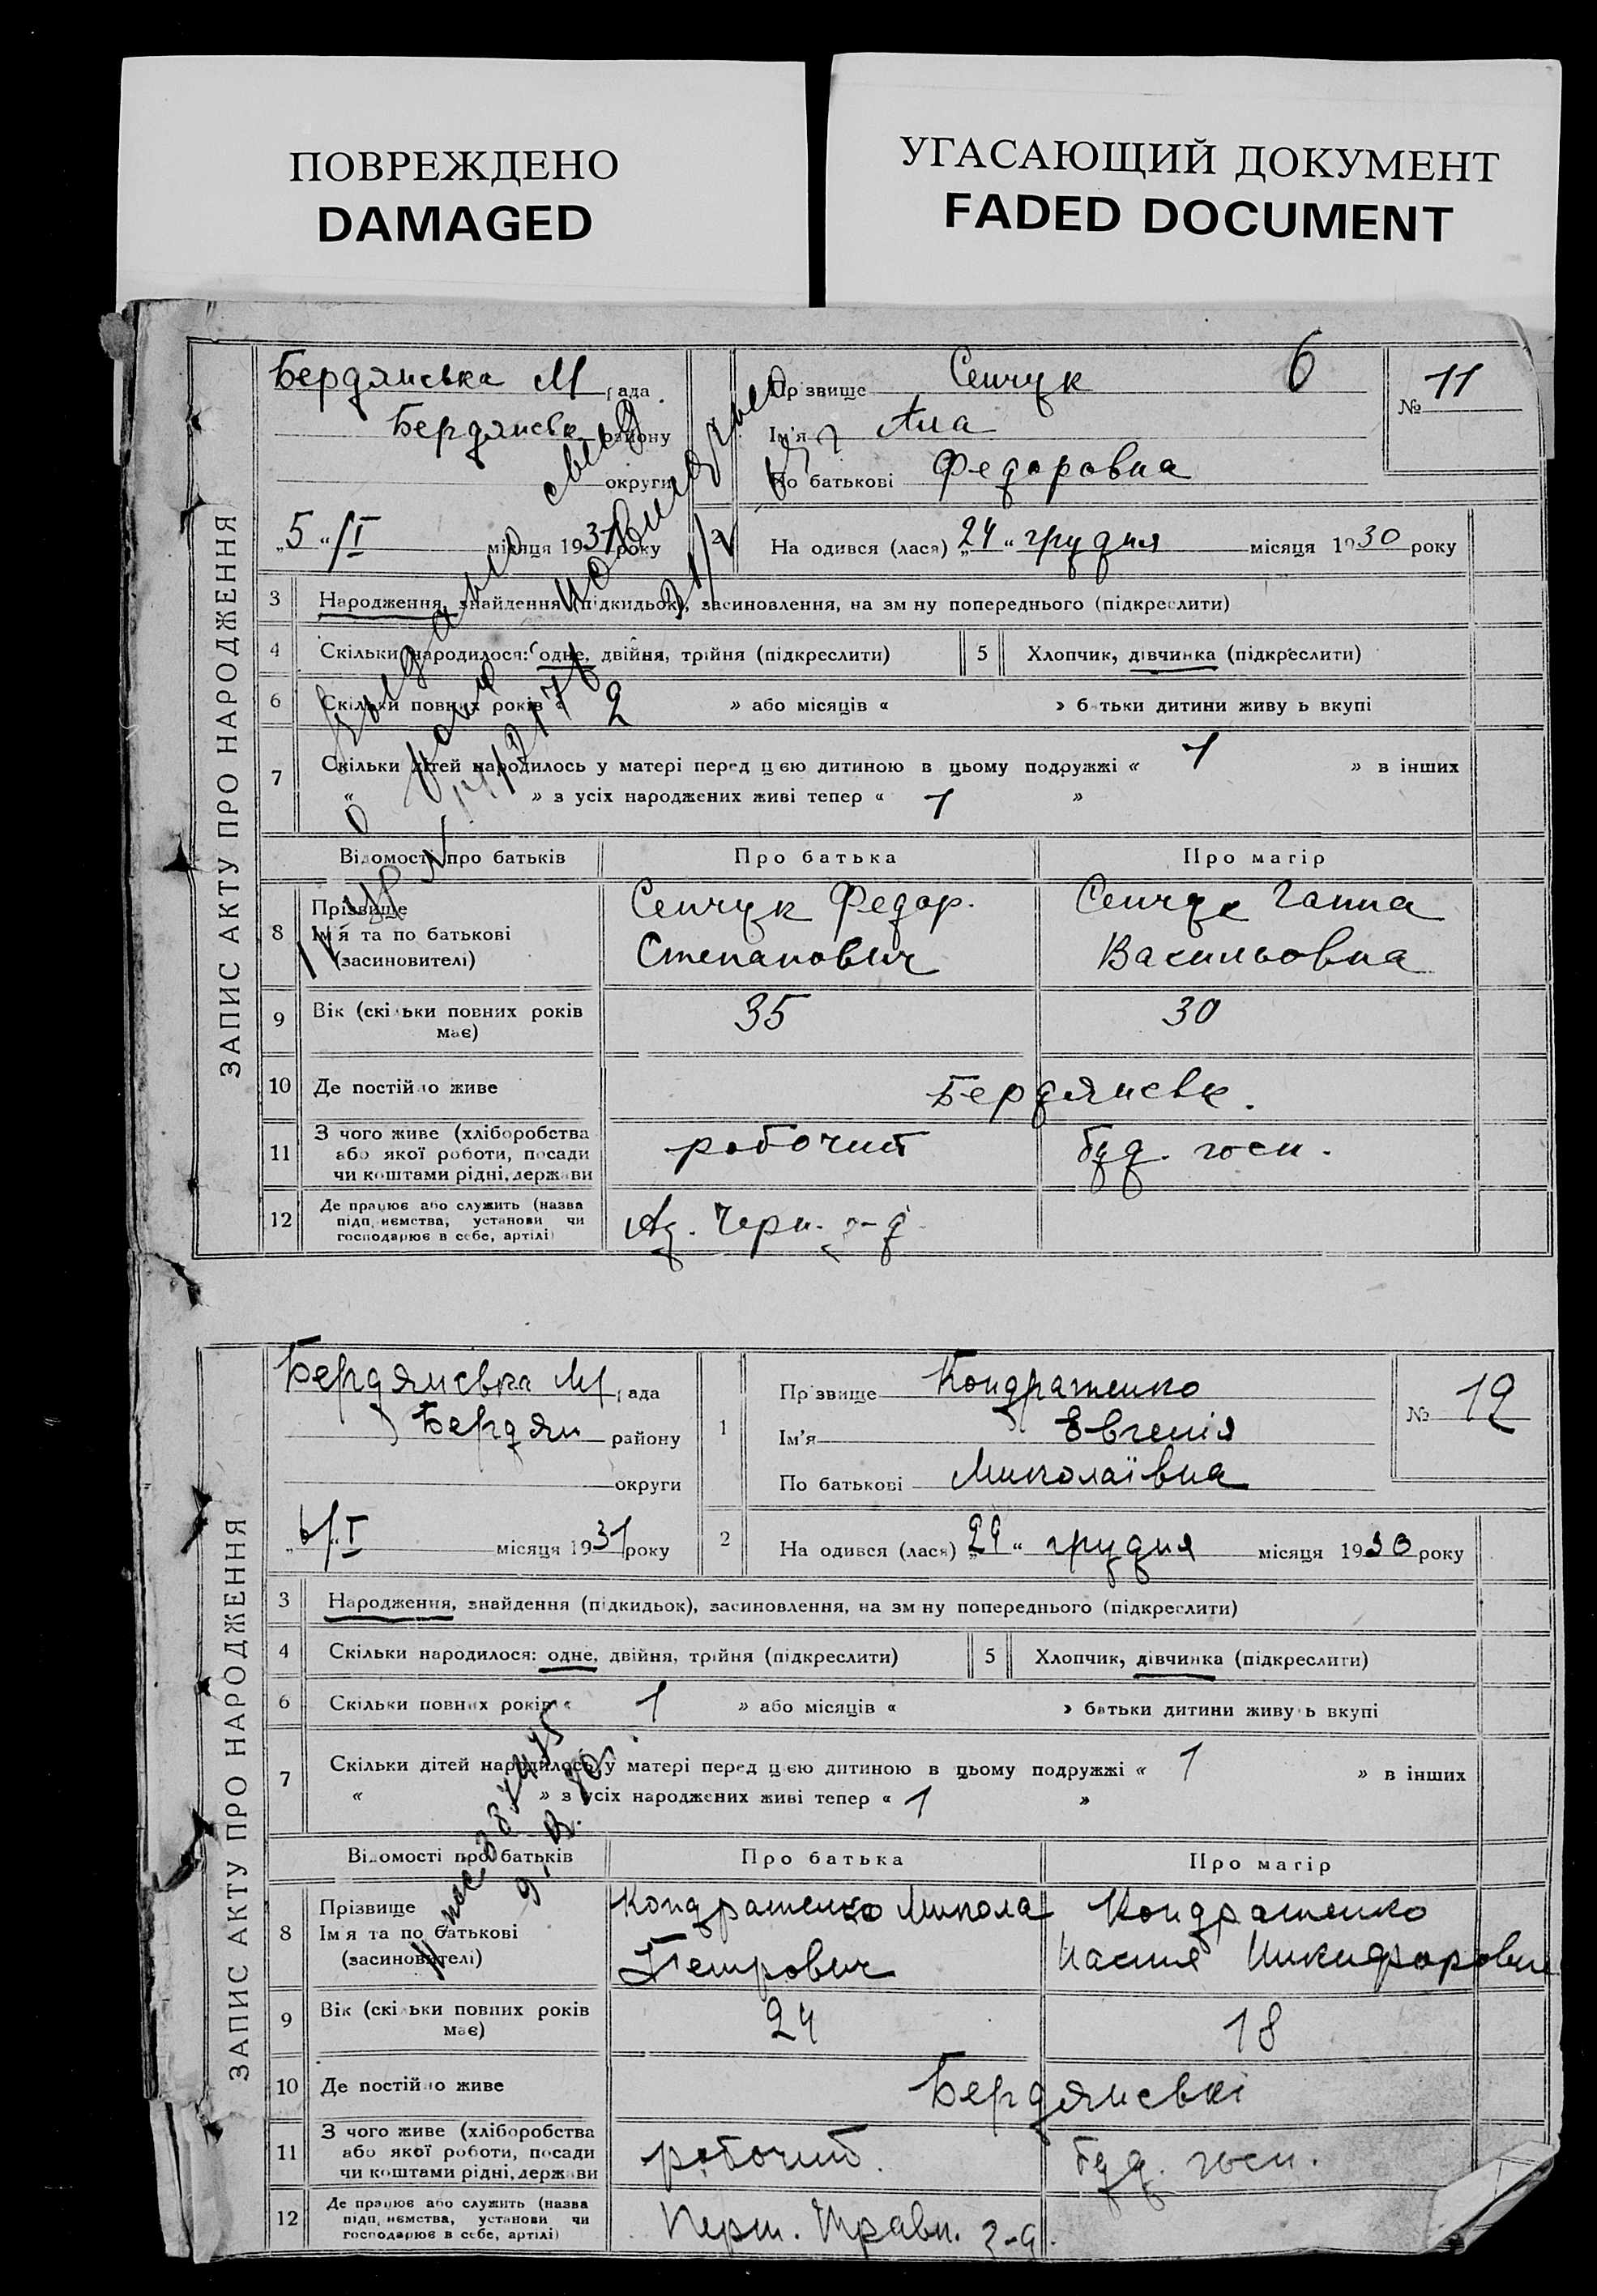 ПОВРЕЖДЕНО
DAMAGED
УГАСАЮЩИЙ ДОКУМЕНТ
FADED DOCUMENT
ЗАПИС АКТУ ПРО НАРОДЖЕННЯ
Бердянська М рада
Бердянськ району
округи
„5“/I місяця 1931 року
Прізвище Сенчук 6
Ім'я Ана
По батькові Федоровна
№ 11
2 На одився (лася) „24“ грудня місяця 1930 року
3 Народження, знайдення (підкидьок), засиновлення, на зм ну попереднього (підкреслити)
4 Скільки народилося: одне, двійня, трійня (підкреслити) 5 Хлопчик, дівчинка (підкреслити)
6 Скільки повних років « 2 » або місяців « » батьки дитини живу ь вкупі
7 Скільки дітей народилось у матері перед цією дитиною в цьому подружжі « 1 » в інших
« » з усіх народжених живі тепер « 1 »
Відомості про батьків Про батька Про матір
8 Прізвище Ім'я та по батькові (засиновителі)
Сенчук Федор. Степанович
Сенчук Ганна Васильовна
9 Вік (скільки повних років має) 35 30
10 Де постійно живе Бердянськ.
11 З чого живе (хліборобства або якої роботи, посади чи коштами рідні, держави робочий буд. госп.
12 Де працює або служить (назва підп, иємства, установи чи господарює в себе, артілі) Аз. Черн. з-д
ЗАПИС АКТУ ПРО НАРОДЖЕННЯ
Бердянська М рада
Бердян району
округи
„6/“I місяця 1931 року
1 Прізвище Кондратенко
Ім'я Евгенія
По батькові Миколаївна
№ 12
2 На одився (лася) „29“ грудня місяця 1930 року
3 Народження, знайдення (підкидьок), засиновлення, на зм ну попереднього (підкреслити)
4 Скільки народилося: одне, двійня, трійня (підкреслити) 5 Хлопчик, дівчинка (підкреслити)
6 Скільки повних років « 1 » або місяців « » батьки дитини живу ь вкупі
7 Скільки дітей народилось у матері перед цією дитиною в цьому подружжі « 1 » в інших
« » з усіх народжених живі тепер « 1 »
Відомості про батьків Про батька Про матір
8 Прізвище Ім'я та по батькові (засиновителі)
Кондратенко Микола Петрович
Кондратенко Настя Никифоровн
9 Вік (скільки повних років має) 24 18
10 Де постійно живе Бердянські
11 З чого живе (хліборобства або якої роботи, посади чи коштами рідні, держави робочий. буд. госп.
12 Де працює або служить (назва підп, иємства, установи чи господарює в себе, артілі) Перш. Травн. з-д.